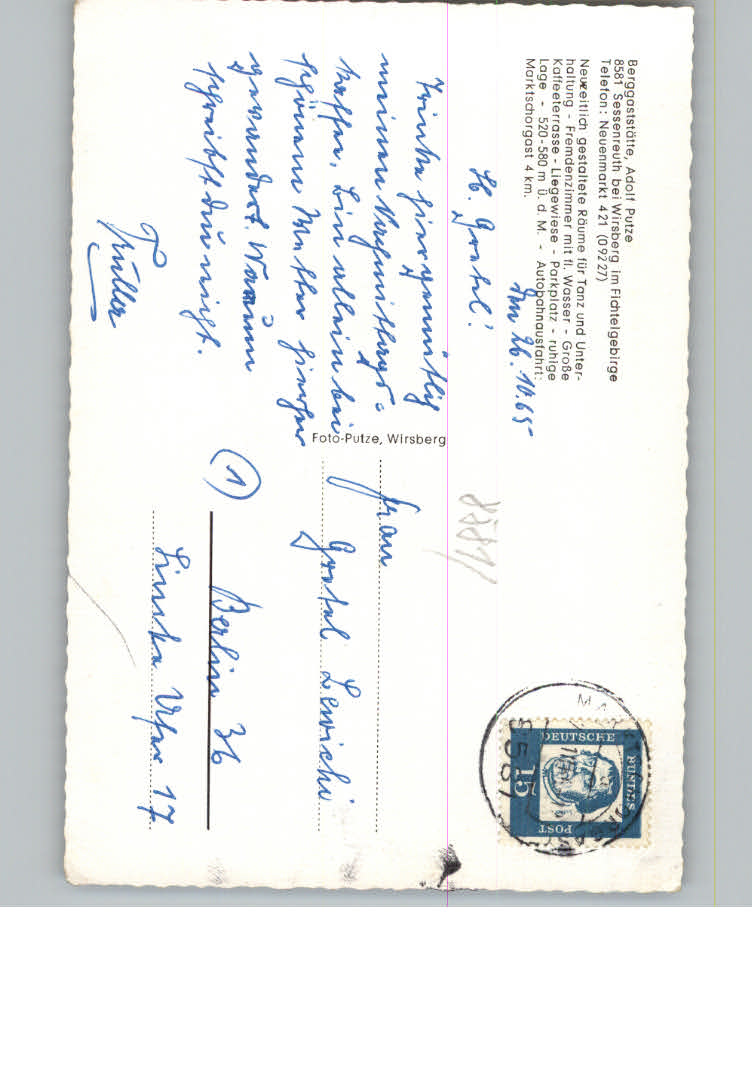 Berggaststätte, Adolf Putze
8581 Sessenreuth bei Wirsberg im Fichtelgebirge
Telefon: Neuenmarkt 421 (09227)
Neuzeitlich gestaltete Räume für Tanz und Unter-
haltung - Fremdenzimmer mit fl. Wasser - Große
Kaffeeterrasse - Liegewiese - Parkplatz - ruhige
Lage - 520-580 m ü. d. M. - Autobahnausfahrt:
Marktschorgast 4 km.
26.10.65
Lb. Gretel!
Trinke hier gemütlich
meinen Nachmittags-
kaffee. Bin allein bei
schönem Wetter hierher
gewandert. Warum
schreibst du nicht.
Foto-Putze, Wirsberg
Frau
Gretel
(1) Berlin 36
Ufer 17
DEUTSCHE
BUNDES
POST
15